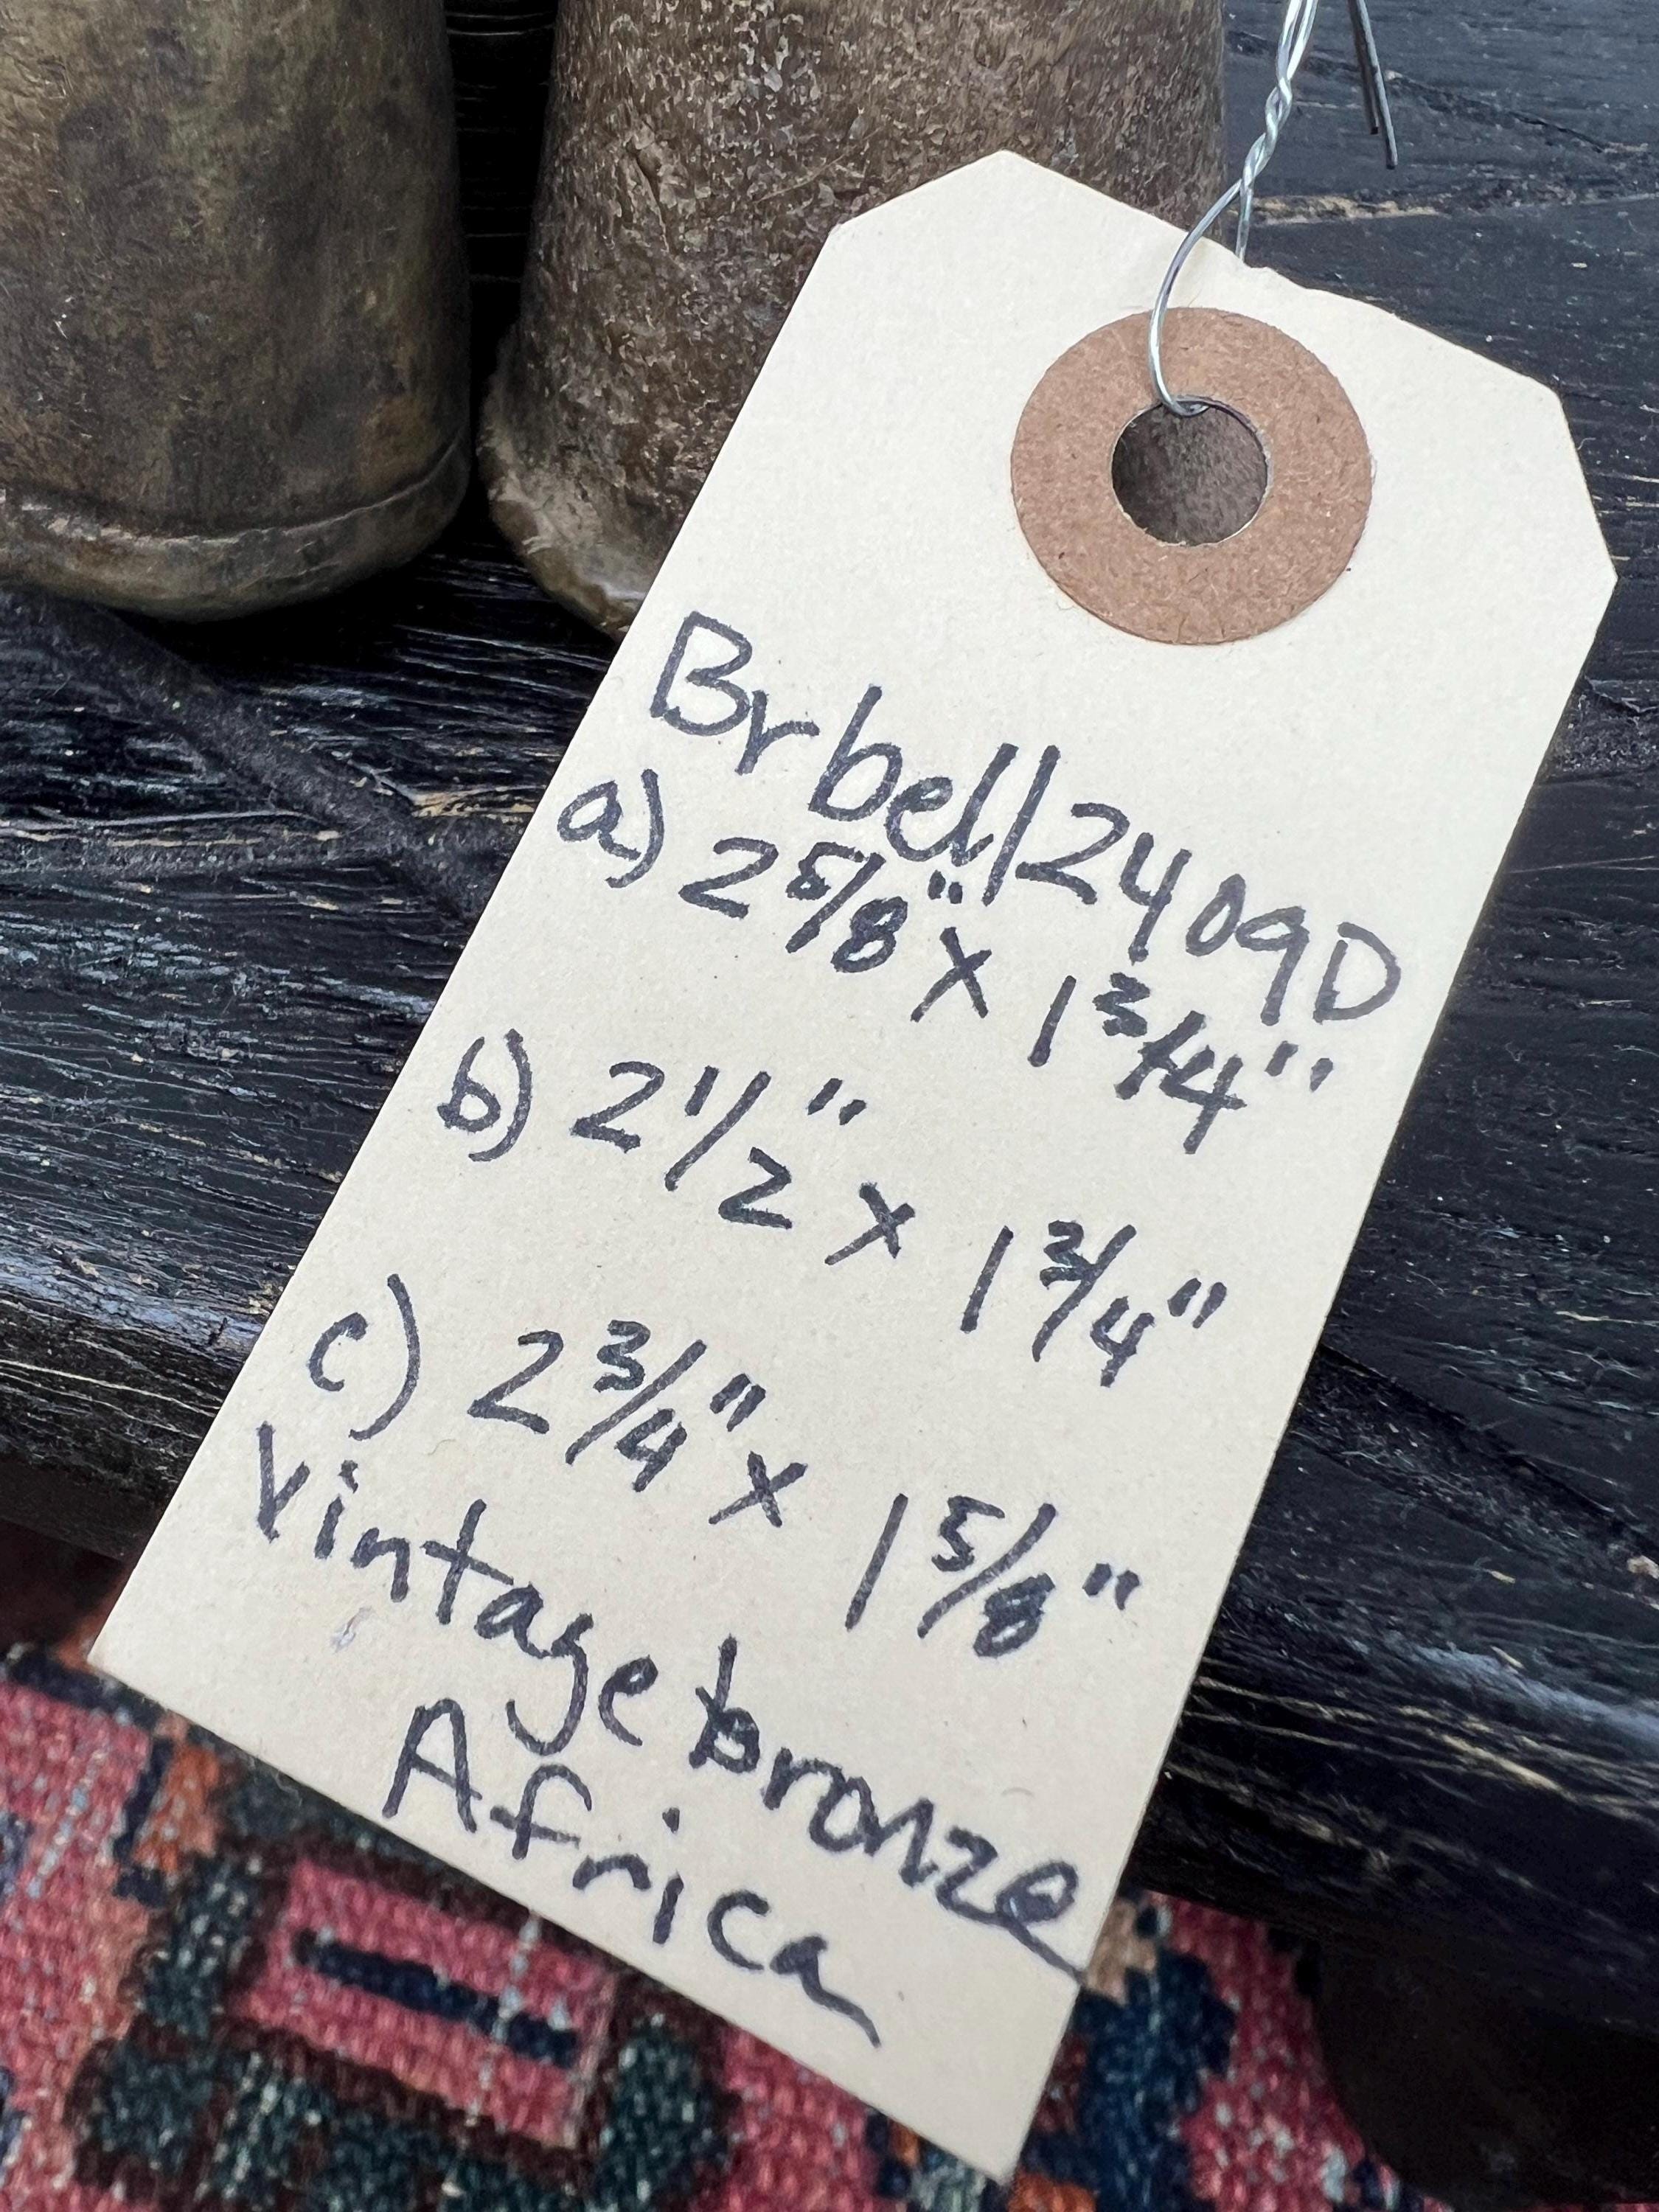 Brbell2409D
a) 2 5/8" x 1 3/4"
b) 2 1/2" x 1 3/4"
c) 2 3/4" x 1 5/8"
Vintage bronze
Africa